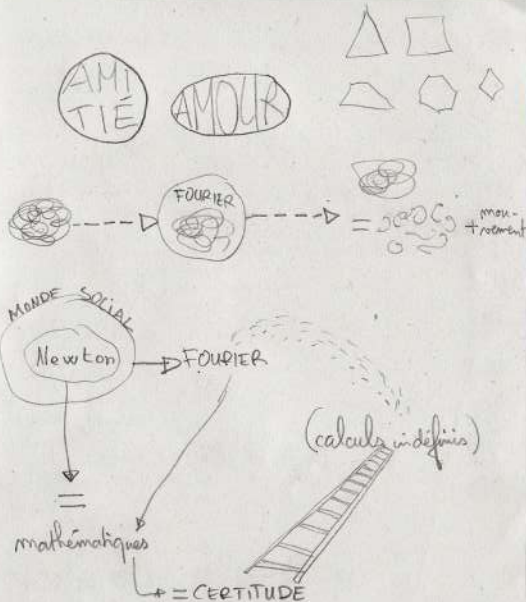 AMI
TIÉ
AMOUR
FOURIER
= + mou-
vement
MONDE SOCIAL
Newton
FOURIER
(calculs indéfinis)
=
mathématiques
= CERTITUDE